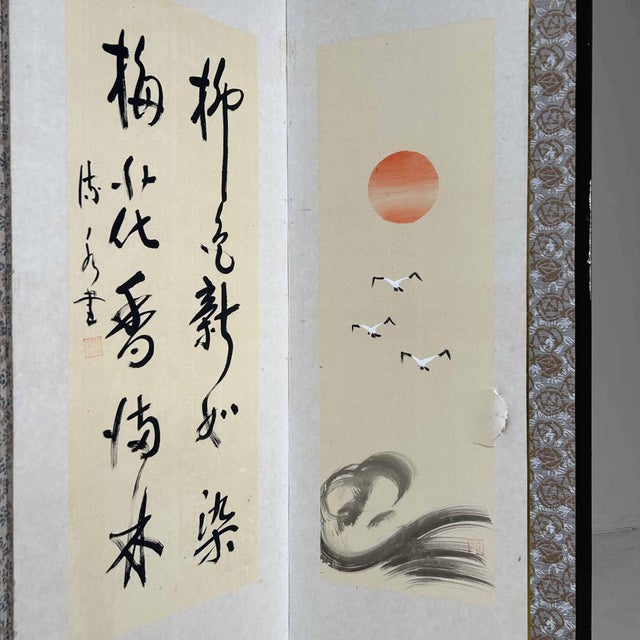 柳色新如染
梅花香満林